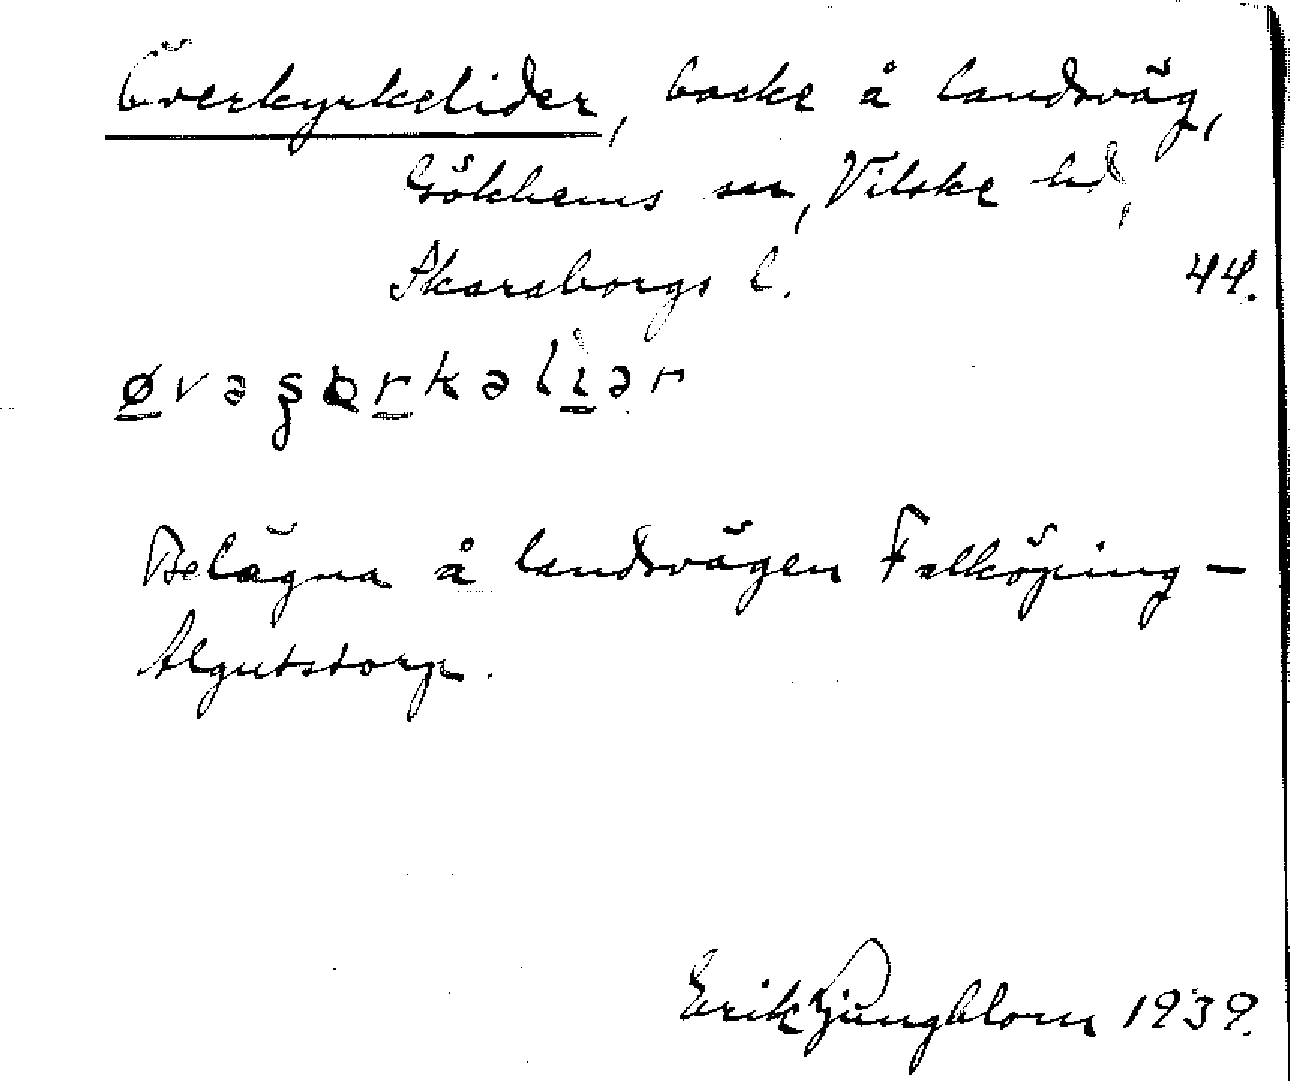 Överkyrkelider, backe å landsväg,
Gökhems sn, Vilske hd,
Skaraborgs l. 44.
Belägna å landsvägen Falköping -
Algutstorp.
Erik Ljungblom 1939.